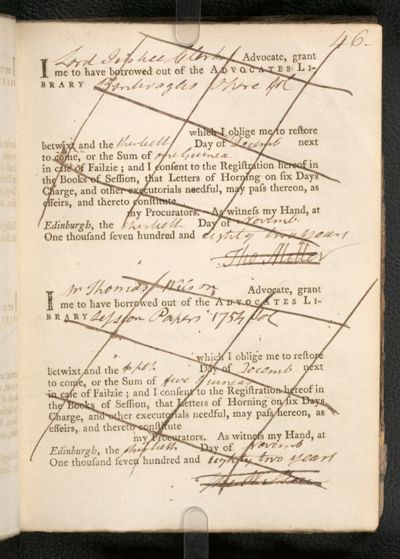 46.
I Lord Justice Clerk Advocate, grant
me to have borrowed out of the ADVOCATES LI-
BRARY
which I oblige me to reſtore
betwixt and the thirtieth Day of Decemb next
to come, or the Sum of one Guinea
in caſe of Failzie ; and I conſent to the Regiſtration hereof in
the Books of Seſſion, that Letters of Horning on ſix Days
Charge, and other executorials needful, may paſs thereon, as
effeirs, and thereto conſtitute
my Procurators. As witneſs my Hand, at
Edinburgh, the thirtieth Day of Novemb.
One thouſand ſeven hundred and eighty two years
Tho. Miller
I Mr Thomas Wilson Advocate, grant
me to have borrowed out of the ADVOCATES LI-
BRARY Session Papers 1754 fol
which I oblige me to reſtore
betwixt and the Day of Decemb next
to come, or the Sum of five Guineas
in caſe of Failzie ; and I conſent to the Regiſtration hereof in
the Books of Seſſion, that Letters of Horning on ſix Days
Charge, and other executorials needful, may paſs hereon, as
effeirs, and thereto conſtitute
my Procurators. As witneſs my Hand, at
Edinburgh, the thirtieth Day of Novemb
One thouſand ſeven hundred and eighty two years